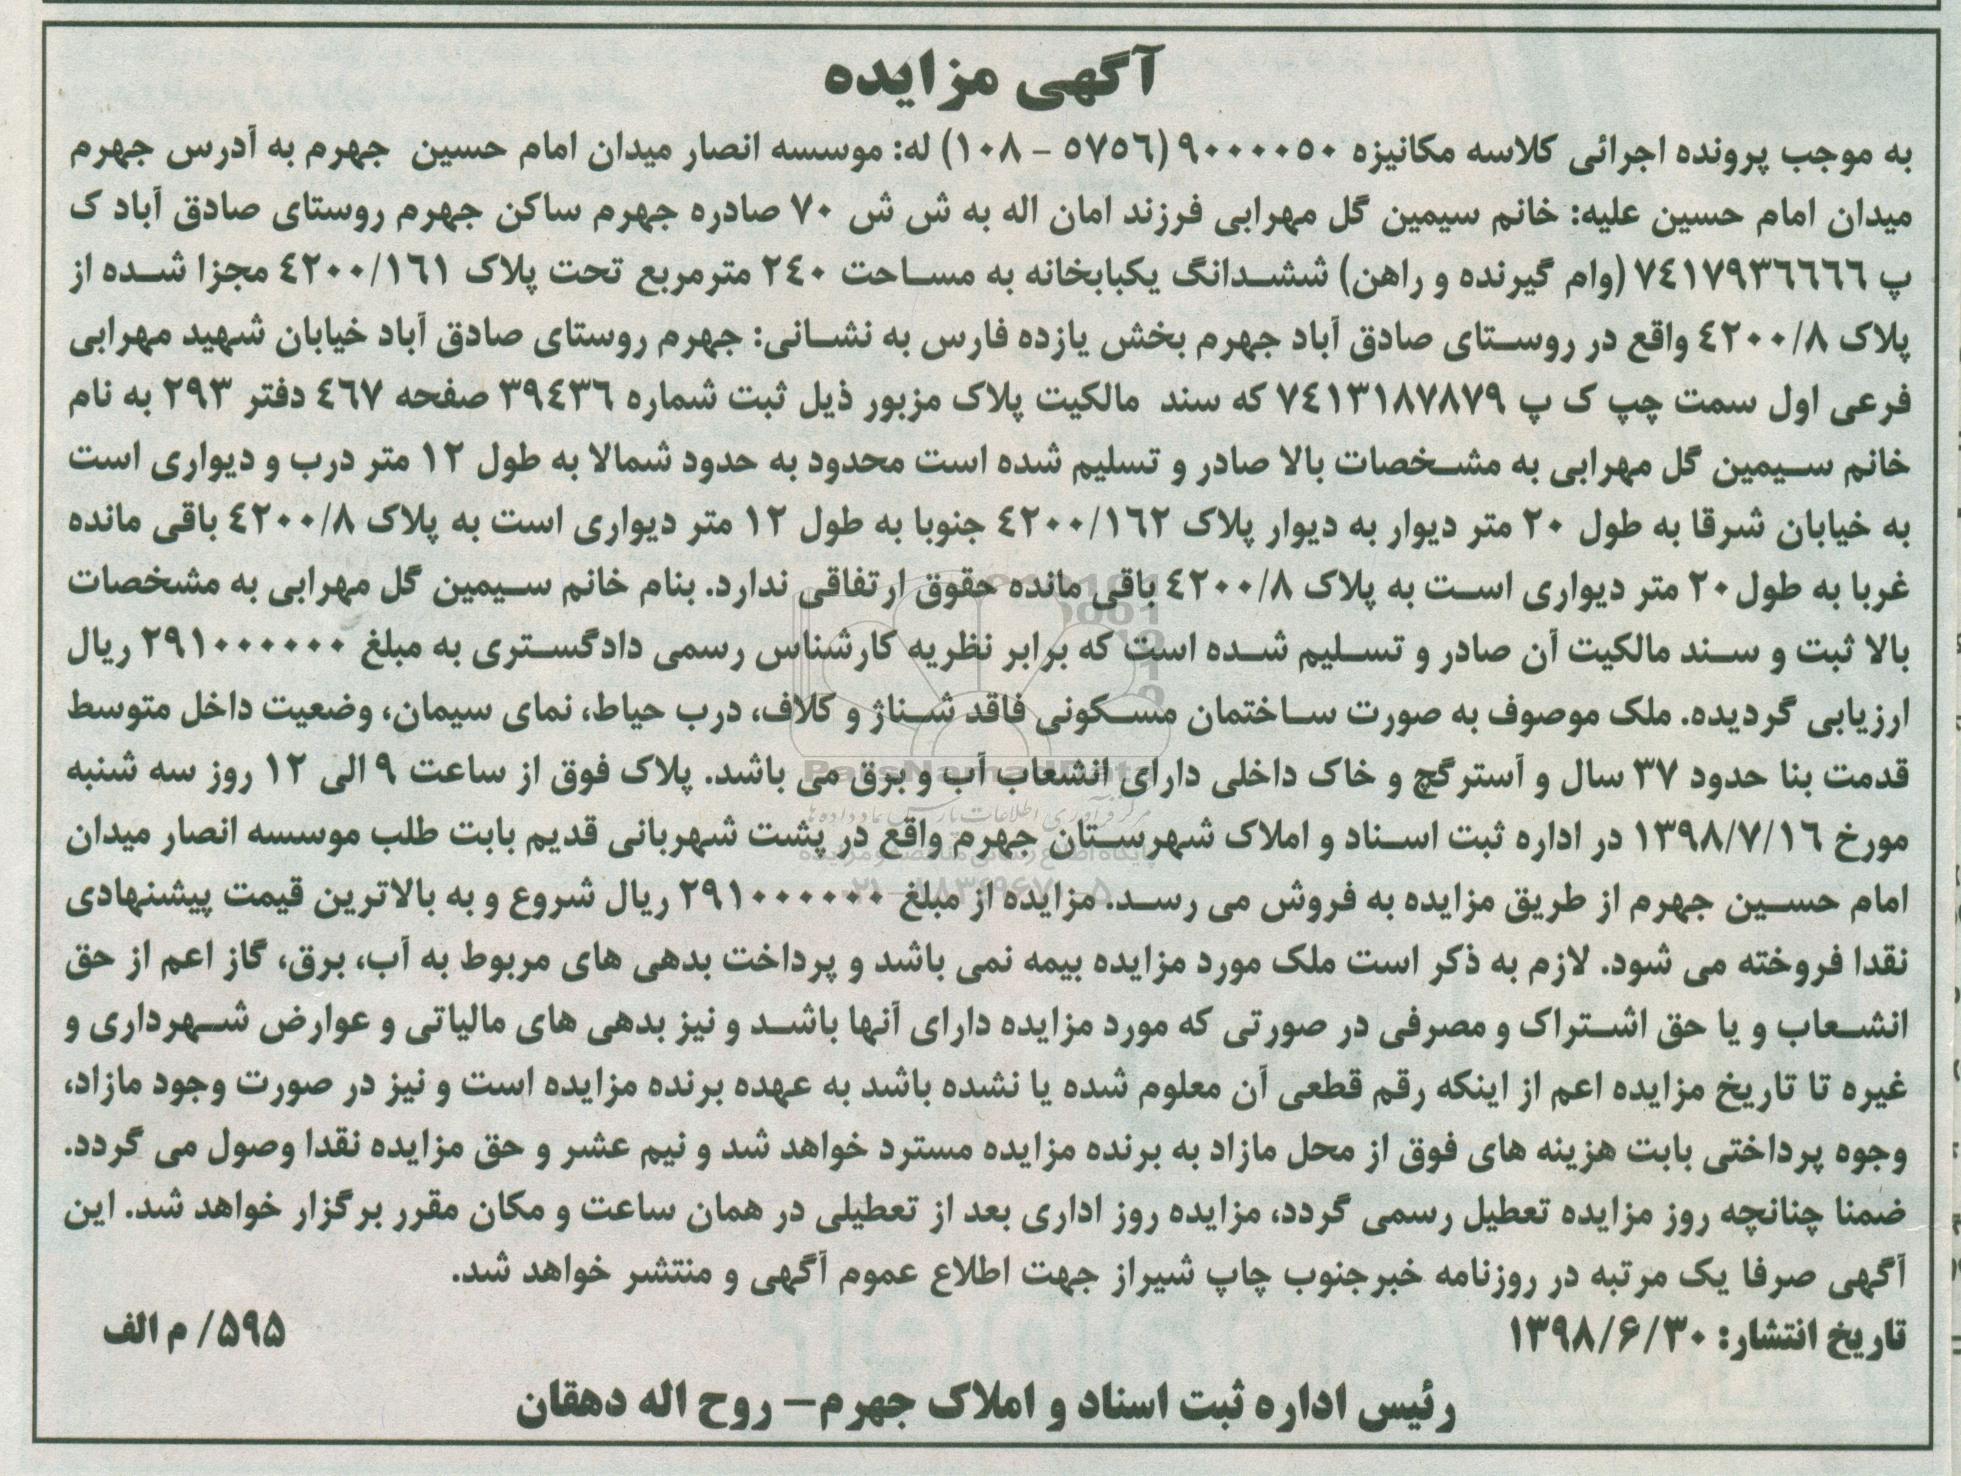 آگهی مزایده
به موجب پرونده اجرائی کلاسه مکانیزه ۹۰۰۰۰۵۰ (۵۷۵۶ – ۱۰۸) له: موسسه انصار میدان امام حسین جهرم به آدرس جهرم
میدان امام حسین علیه: خانم سیمین گل مهرابی فرزند امان اله به ش ش ۷۰ صادره جهرم ساکن جهرم روستای صادق آباد ک
پ ۷۴۱۷۹۳۶۶۶۶ (وام گیرنده و راهن) ششدانگ یکبابخانه به مساحت ۲۴۰ مترمربع تحت پلاک ۴۲۰۰/۱۶۱ مجزا شده از
پلاک ۴۲۰۰/۸ واقع در روستای صادق آباد جهرم بخش یازده فارس به نشانی: جهرم روستای صادق آباد خیابان شهید مهرابی
فرعی اول سمت چپ ک پ ۷۴۱۳۱۸۷۸۷۹ که سند مالکیت پلاک مزبور ذیل ثبت شماره ۳۹۴۳۶ صفحه ۴۶۷ دفتر ۲۹۳ به نام
خانم سیمین گل مهرابی به مشخصات بالا صادر و تسلیم شده است محدود به حدود شمالا به طول ۱۲ متر درب و دیواری است
به خیابان شرقا به طول ۲۰ متر دیوار به دیوار پلاک ۴۲۰۰/۱۶۲ جنوبا به طول ۱۲ متر دیواری است به پلاک ۴۲۰۰/۸ باقی مانده
غربا به طول۲۰ متر دیواری است به پلاک ۴۲۰۰/۸ باقی مانده حقوق ارتفاقی ندارد. بنام خانم سیمین گل مهرابی به مشخصات
بالا ثبت و سند مالکیت آن صادر و تسلیم شده است که برابر نظریه کارشناس رسمی دادگستری به مبلغ ۲۹۱۰۰۰۰۰۰ ریال
ارزیابی گردیده. ملک موصوف به صورت ساختمان مسکونی فاقد شناژ و کلاف، درب حیاط، نمای سیمان، وضعیت داخل متوسط
قدمت بنا حدود ۳۷ سال و آسترگچ و خاک داخلی دارای انشعاب آب و برق می باشد. پلاک فوق از ساعت ۹ الی ۱۲ روز سه شنبه
مورخ ۱۳۹۸/۷/۱۶ در اداره ثبت اسناد و املاک شهرستان جهرم واقع در پشت شهربانی قدیم بابت طلب موسسه انصار میدان
امام حسین جهرم از طریق مزایده به فروش می رسد. مزایده از مبلغ ۲۹۱۰۰۰۰۰۰ ریال شروع و به بالاترین قیمت پیشنهادی
نقدا فروخته می شود. لازم به ذکر است ملک مورد مزایده بیمه نمی باشد و پرداخت بدهی های مربوط به آب، برق، گاز اعم از حق
انشعاب و یا حق اشتراک و مصرفی در صورتی که مورد مزایده دارای آنها باشد و نیز بدهی های مالیاتی و عوارض شهرداری و
غیره تا تاریخ مزایده اعم از اینکه رقم قطعی آن معلوم شده یا نشده باشد به عهده برنده مزایده است و نیز در صورت وجود مازاد،
وجوه پرداختی بابت هزینه های فوق از محل مازاد به برنده مزایده مسترد خواهد شد و نیم عشر و حق مزایده نقدا وصول می گردد.
ضمنا چنانچه روز مزایده تعطیل رسمی گردد، مزایده روز اداری بعد از تعطیلی در همان ساعت و مکان مقرر برگزار خواهد شد. این
آگهی صرفا یک مرتبه در روزنامه خبرجنوب چاپ شیراز جهت اطلاع عموم آگهی و منتشر خواهد شد.
تاریخ انتشار: ۱۳۹۸/۶/۳۰
۵۹۵/ م الف
رئیس اداره ثبت اسناد و املاک جهرم– روح اله دهقان